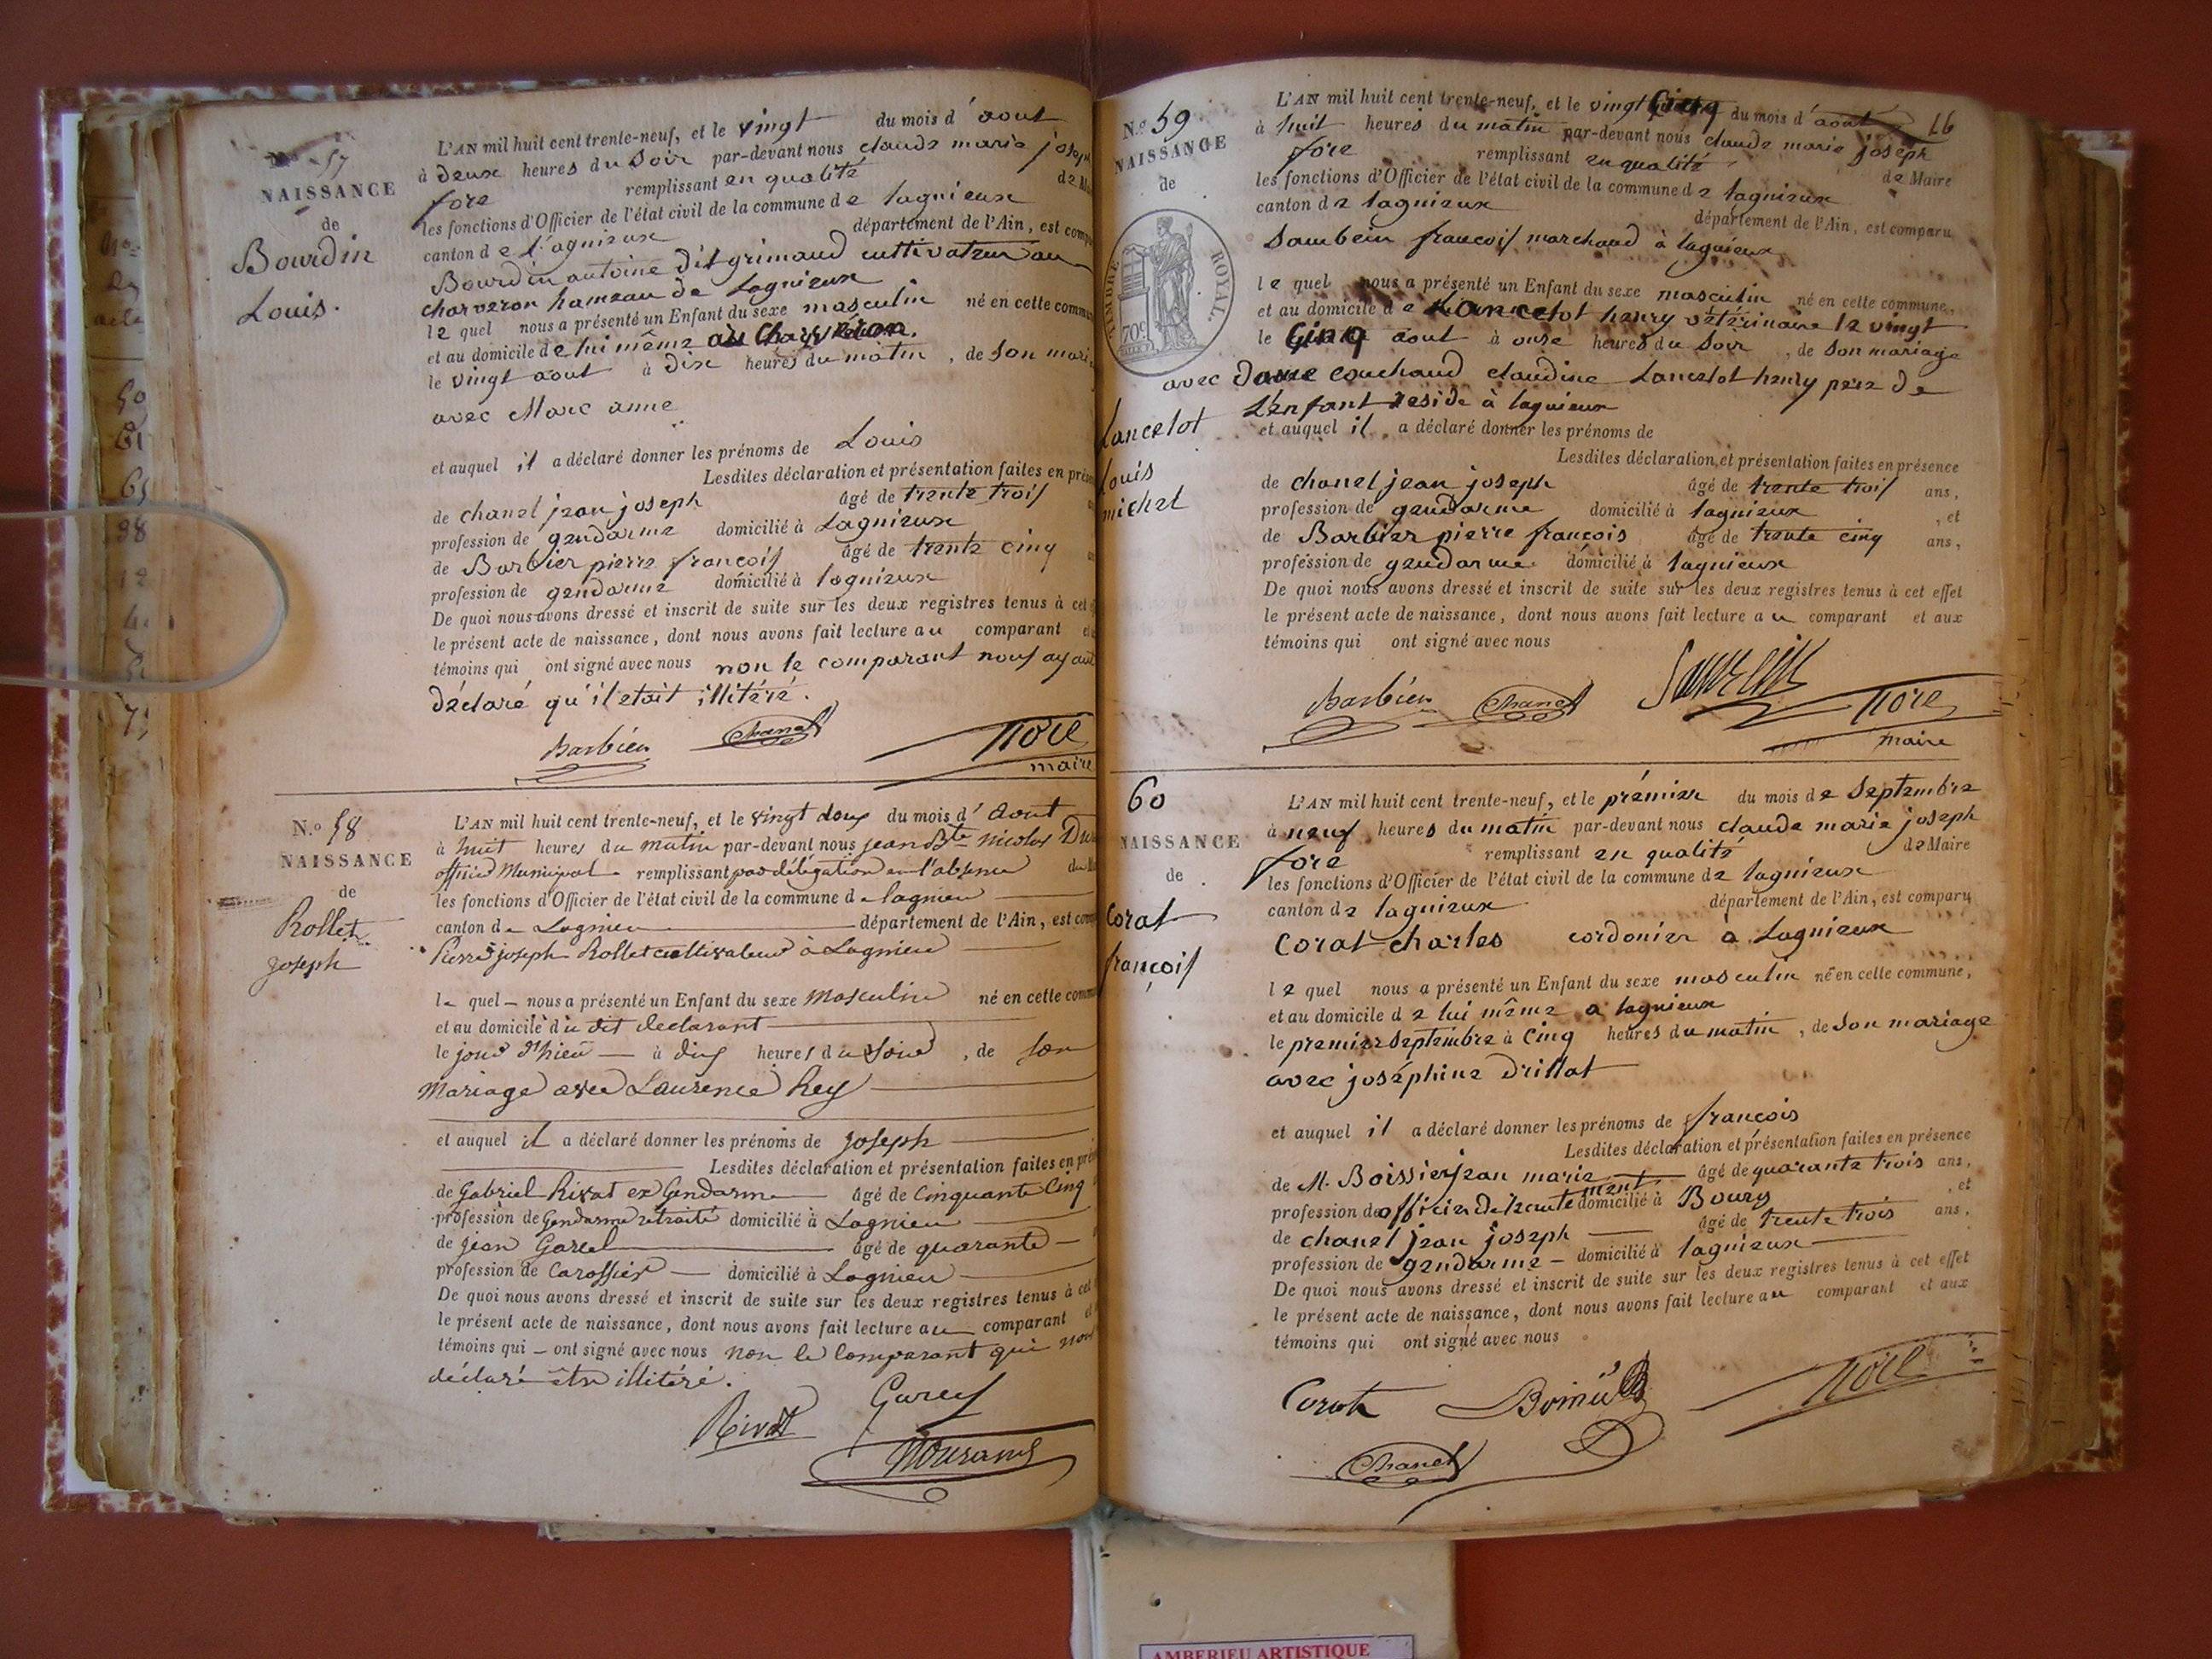 N.o 57
NAISSANCE
de
Bourdin
Louis.
L'AN mil huit cent trente-neuf, et le vingt du mois d'aout
à deux heures du Soir par-devant nous claude marie joseph
remplissant en qualité de
les fonctions d'Officier de l'état civil de la commune de lagnieux
canton de Lagnieux département de l'Ain, est
Bourdin antoine dit grimaud cultivateur au
charveron hameau de Lagnieux
le quel nous a présenté un Enfant du sexe masculin né en cette
et au domicile de lui même au
le vingt aout à dix heures du matin, de Son
avec Marc anne
et auquel il a déclaré donner les prénoms de Louis
Lesdites déclaration et présentation faites en
de chanel jean joseph âgé de trente trois
profession de gendarme domicilié à Lagnieux
de Barbier pierre françois âgé de trente cinq
profession de gendarme domicilié à lagnieux
De quoi nous avons dressé et inscrit de suite sur les deux registres tenus à cet
le présent acte de naissance, dont nous avons fait lecture au comparant
témoins qui ont signé avec nous non le comparant nous ayant
déclaré qu'il etait illitéré.
Barbier Chanel
maire
N.o 58
NAISSANCE
de
Rollet
joseph
L'AN mil huit cent trente-neuf, et le vingt doux du mois d'Aout
à huit heures du matin par-devant nous jean Bte nicolas
officier Municipal remplissant par délégation en l'absence du
les fonctions d'Officier de l'état civil de la commune de lagnieu
canton de Lagnieu département de l'Ain, est
Pierre joseph Rollet cultivateur à Lagnieu
le quel nous a présenté un Enfant du sexe Masculin né en cette
et au domicile du dit declarant
le jour d'hier à dix heures du Soir, de son
Mariage avec Laurence Rey
et auquel il a déclaré donner les prénoms de joseph
Lesdites déclaration et présentation faites en
de Gabriel Rivat ex Gendarme âgé de Cinquante Cinq
profession de Gendarme retraité domicilié à Lagnieu
de jean Garel âgé de quarante
profession de Carossier domicilié à Lagnieu
De quoi nous avons dressé et inscrit de suite sur les deux registres tenus à cet
le présent acte de naissance, dont nous avons fait lecture au comparant
témoins qui ont signé avec nous non le comparant qui nous
déclaré être illitéré.
Rivat
16
N.o 59
NAISSANCE
de
TIMBRE ROYAL.
70c
Lancelot
Louis
michel
L'AN mil huit cent trente-neuf, et le vingt Cinq du mois d'aout
à huit heures du matin par-devant nous claude marie joseph
remplissant en qualité de Maire
les fonctions d'Officier de l'état civil de la commune de lagnieux
canton de lagnieux département de l'Ain, est comparu
françois marchand à lagnieux
le quel nous a présenté un Enfant du sexe masculin né en cette commune,
et au domicile de Lancelot henry vétérinaire le vingt
le Cinq aout à onze heures du Soir, de Son mariage
avec Dame couchaud claudine Lancelot henry pere de
L'enfant reside à lagnieux
et auquel il a déclaré donner les prénoms de
Lesdites déclaration et présentation faites en présence
de chanel jean joseph âgé de trente trois ans,
profession de gendarme domicilié à lagnieux, et
de Barbier pierre françois âgé de trente cinq ans,
profession de gendarme domicilié à lagnieux
De quoi nous avons dressé et inscrit de suite sur les deux registres tenus à cet effet
le présent acte de naissance, dont nous avons fait lecture au comparant et aux
témoins qui ont signé avec nous
Barbier Chanel
maire
60
NAISSANCE
de
Corat
françois
L'AN mil huit cent trente-neuf, et le prémier du mois de Septembre
à neuf heures du matin par-devant nous claude marie joseph
remplissant en qualité de Maire
les fonctions d'Officier de l'état civil de la commune de lagnieux
canton de lagnieux département de l'Ain, est comparu
Corat charles cordonier à Lagnieux
le quel nous a présenté un Enfant du sexe masculin né en cette commune,
et au domicile de lui même à lagnieux
le premier septembre à Cinq heures du matin, de Son mariage
avec joséphine Drillat
et auquel il a déclaré donner les prénoms de françois
Lesdites déclaration et présentation faites en présence
de M. Boissier jean marie âgé de quarante trois ans,
profession de officier de recrutement domicilié à Bourg, et
de chanel jean joseph âgé de trente trois ans,
profession de gendarme domicilié à lagnieux
De quoi nous avons dressé et inscrit de suite sur les deux registres tenus à cet effet
le présent acte de naissance, dont nous avons fait lecture au comparant et aux
témoins qui ont signé avec nous
Corat
Chanel
AMBERIEU ARTISTIQUE